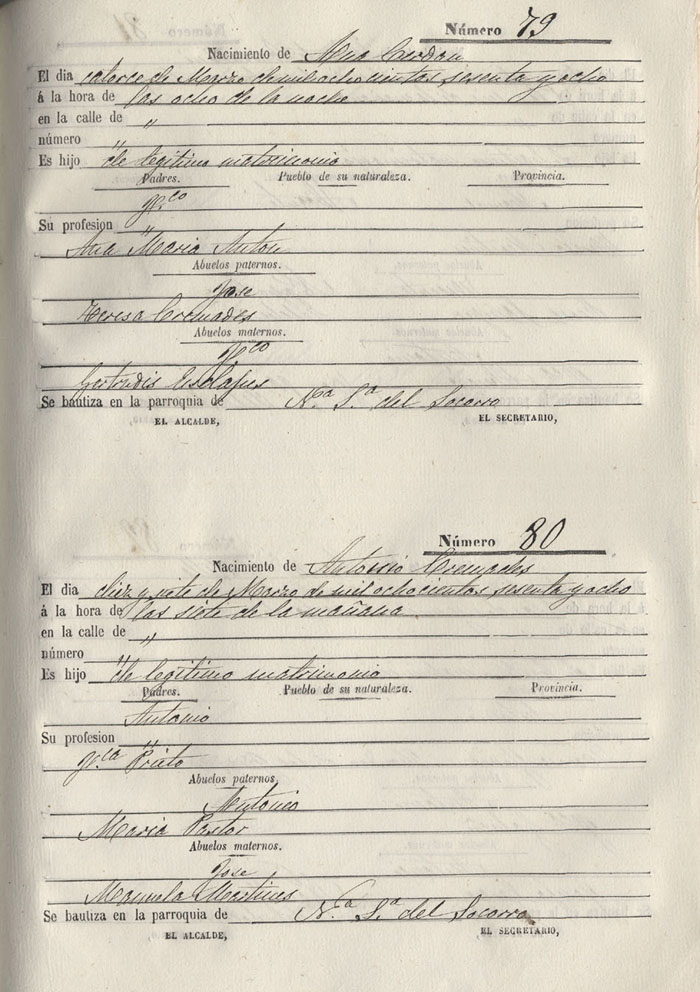 Número 79
Nacimiento de Ana Cerdan
El dia catorce de Marzo de mil ochocientos sesenta y ocho
á la hora de las ocho de la noche
en la calle de "
número "
Es hijo de legitimo matrimonio
Padres. Pueblo de su naturaleza. Provincia.
Fr.co
Su profesion "
Ana Maria Anton
Abuelos paternos.
Jose
Teresa Cremades
Abuelos maternos.
Fr.co
Gertrudis Esclapes
Se bautiza en la parroquia de N.a S.a del Socorro
EL ALCALDE, EL SECRETARIO,
Número 80
Nacimiento de Antonio Cremades
El dia diez y siete de Marzo de mil ochocientos sesenta y ocho
á la hora de las siete de la mañana
en la calle de "
número "
Es hijo de legitimo matrimonio
Padres. Pueblo de su naturaleza. Provincia.
Antonio
Su profesion "
Fr.ca Prieto
Abuelos paternos.
Antonio
Maria Pastor
Abuelos maternos.
Jose
Manuela Martines
Se bautiza en la parroquia de N.a S.a del Socorro
EL ALCALDE, EL SECRETARIO,